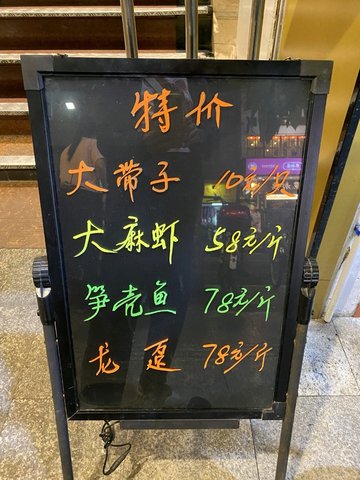 特价
大带子 10元/只
大麻虾 58元/斤
笋壳鱼 78元/斤
龙趸 78元/斤